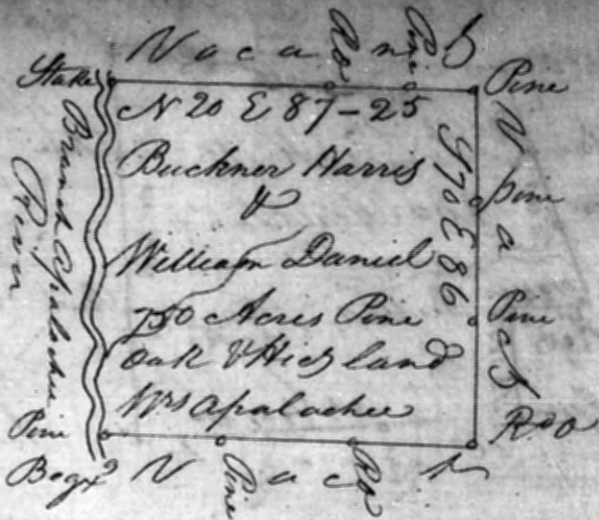 Vacant
RO
Pine
Stake
Pine
N 20 E 87-25
Buckner Harris
&
William Daniel
750 Acres Pine
Oak & Hick land
Wrs Apalachee
S 70 E 86
Branch Apalachee
River
Vac
Pine
Pine
R O
Pine
Beg
Vac
Pine
RO